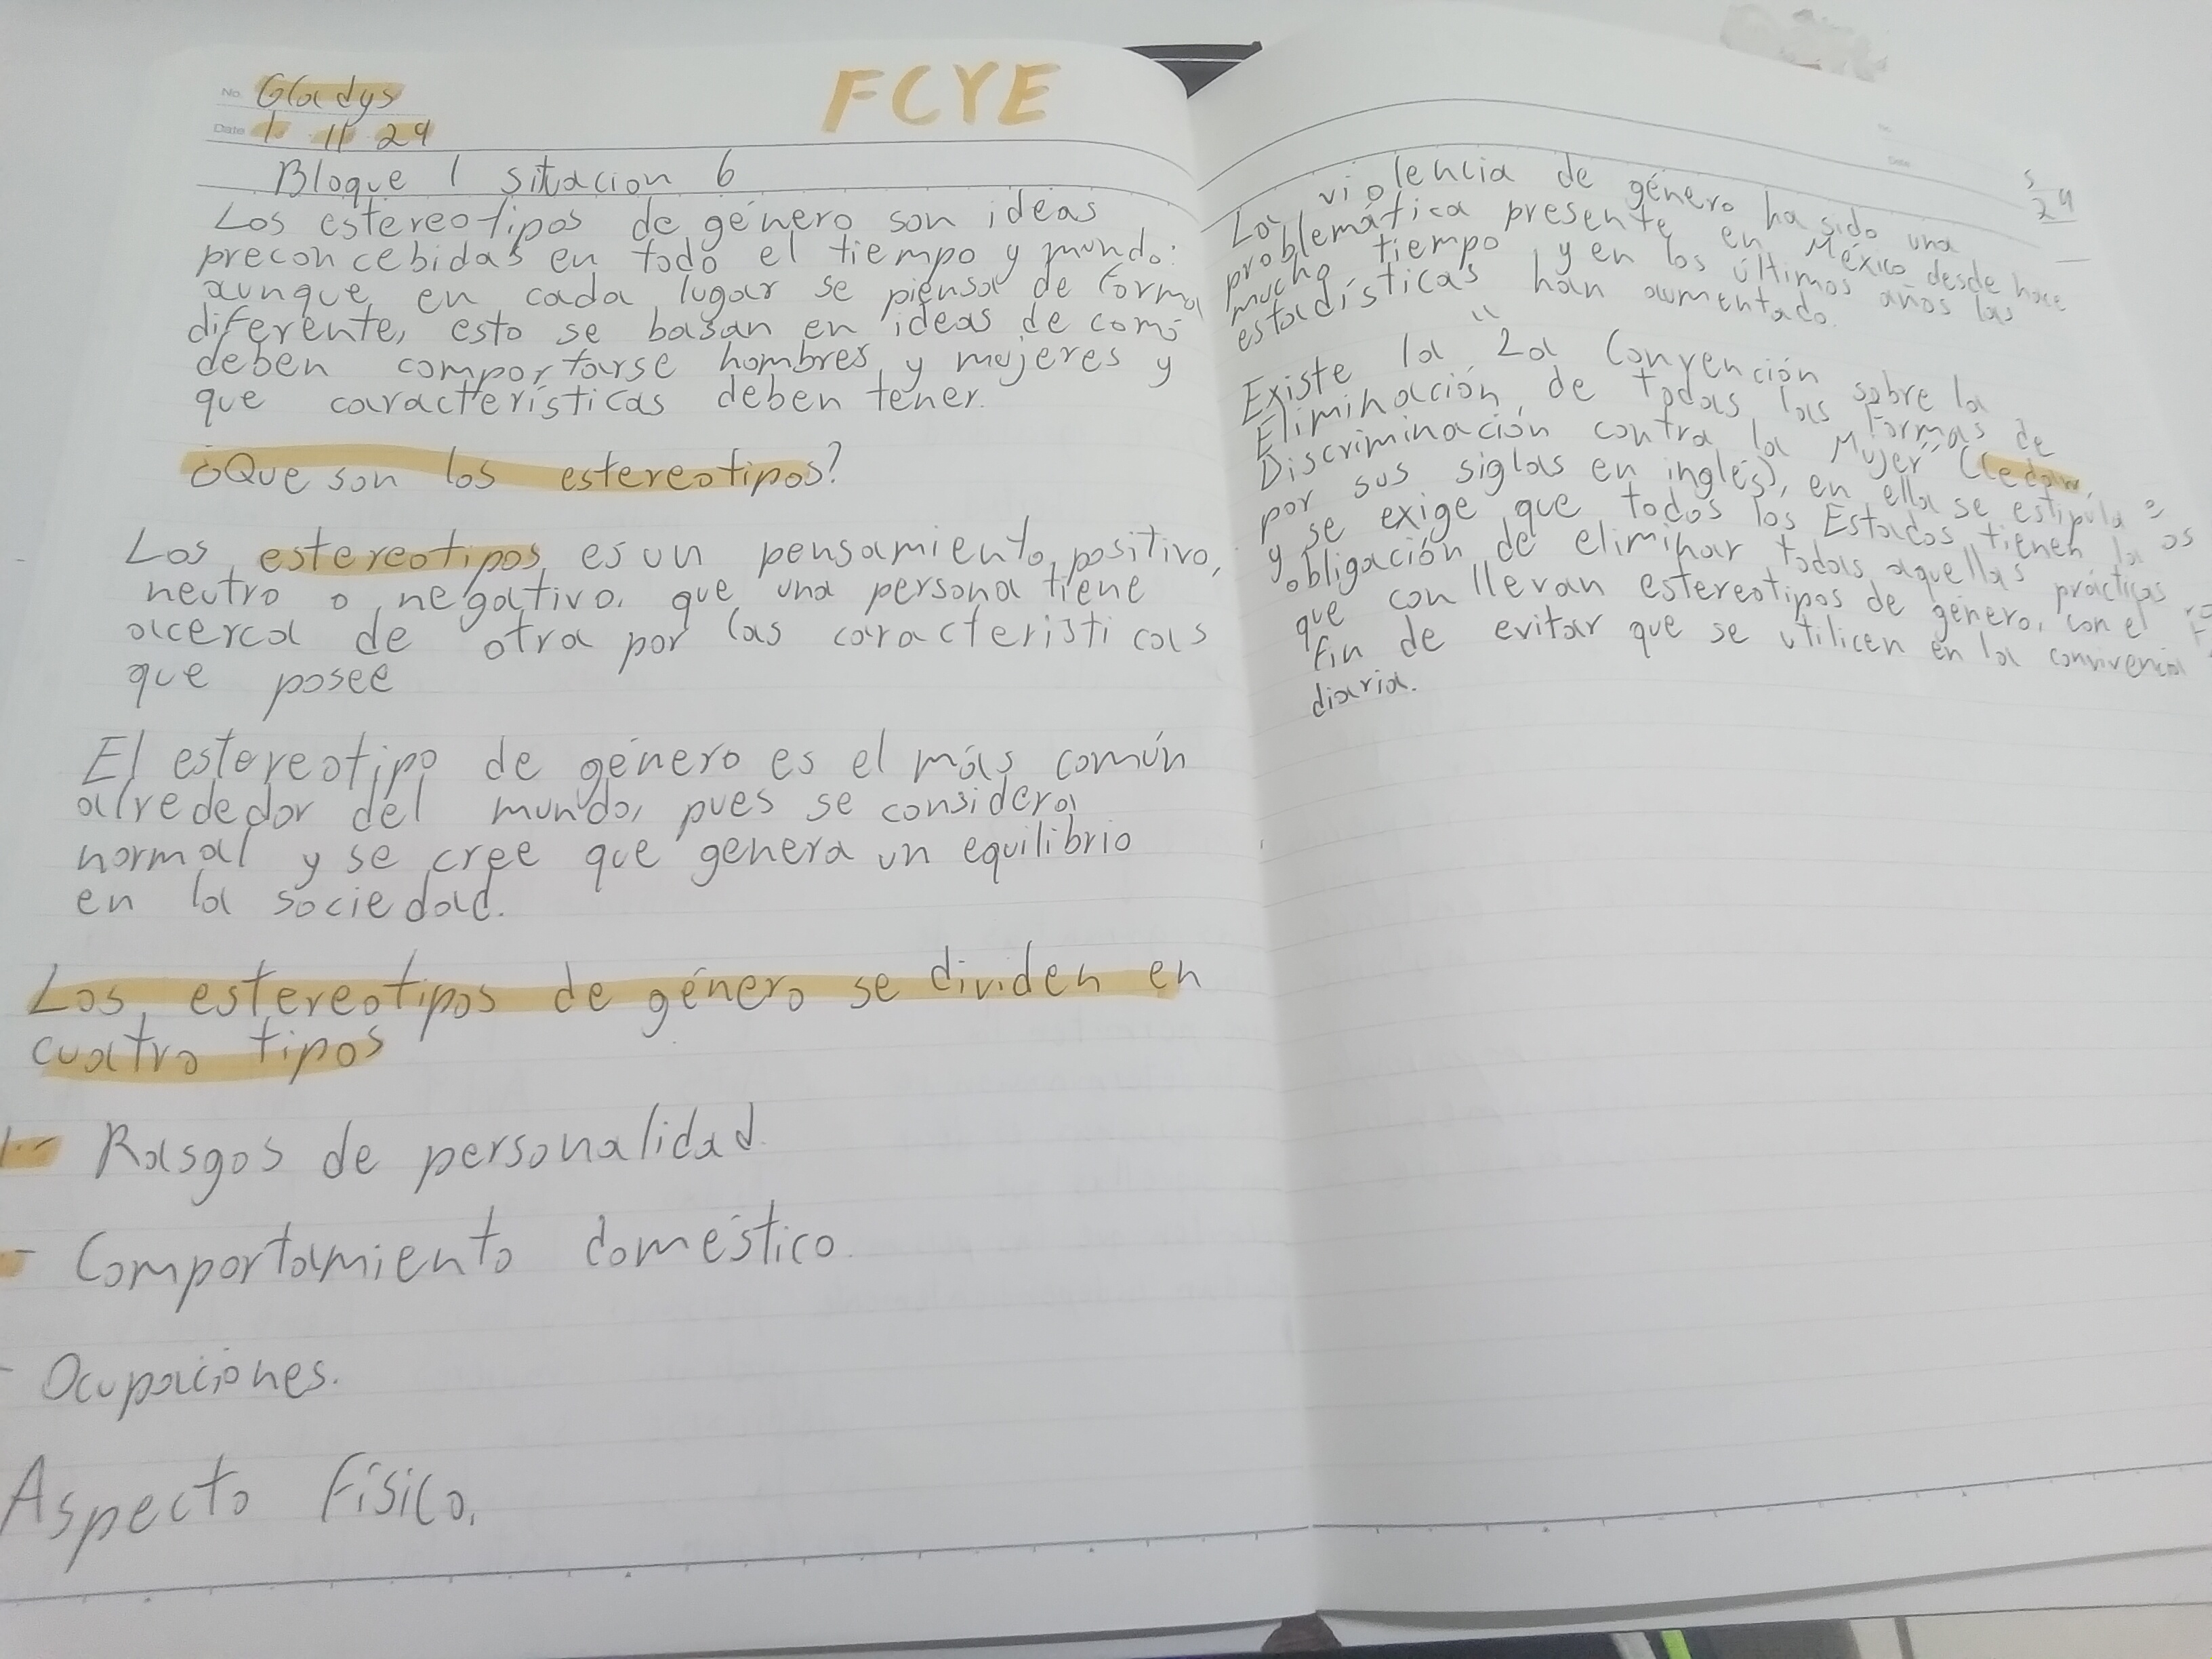 No. Gladys
FCYE
Date 1. 11 24
Bloque 1 situacion 6
Los estereotipos de género son ideas
preconcebidas en todo el tiempo y mundo:
aunque en cada lugar se piensa de forma
diferente, esto se basan en ideas de como
deben comportarse hombres y mujeres y
que características deben tener.
¿Que son los estereotipos?
Los estereotipos es un pensamiento positivo,
neutro o negativo. que una persona tiene
acerca de otra por las caracteristicas
que posee
El estereotipo de género es el más común
alrededor del mundo, pues se considera
normal y se cree que genera un equilibrio
en la sociedad.
Los estereotipos de género se dividen en
cuatro tipos
1.- Rasgos de personalidad.
- Comportamiento doméstico.
- Ocupaciones.
Aspecto Físico.
La violencia de género ha sido una
problemática presente en México desde hace
mucho tiempo y en los últimos años las
estadísticas han aumentado.
Existe la "2a Convención sobre la
Eliminación de todas las formas de
Discriminación contra la Mujer" (Cedaw,
por sus siglas en inglés), en ella se estipula
y se exige que todos los Estados tienen la
obligación de eliminar todas aquellas prácticas
que conllevan estereotipos de género, con el
fin de evitar que se utilicen en la convivencia
diaria.